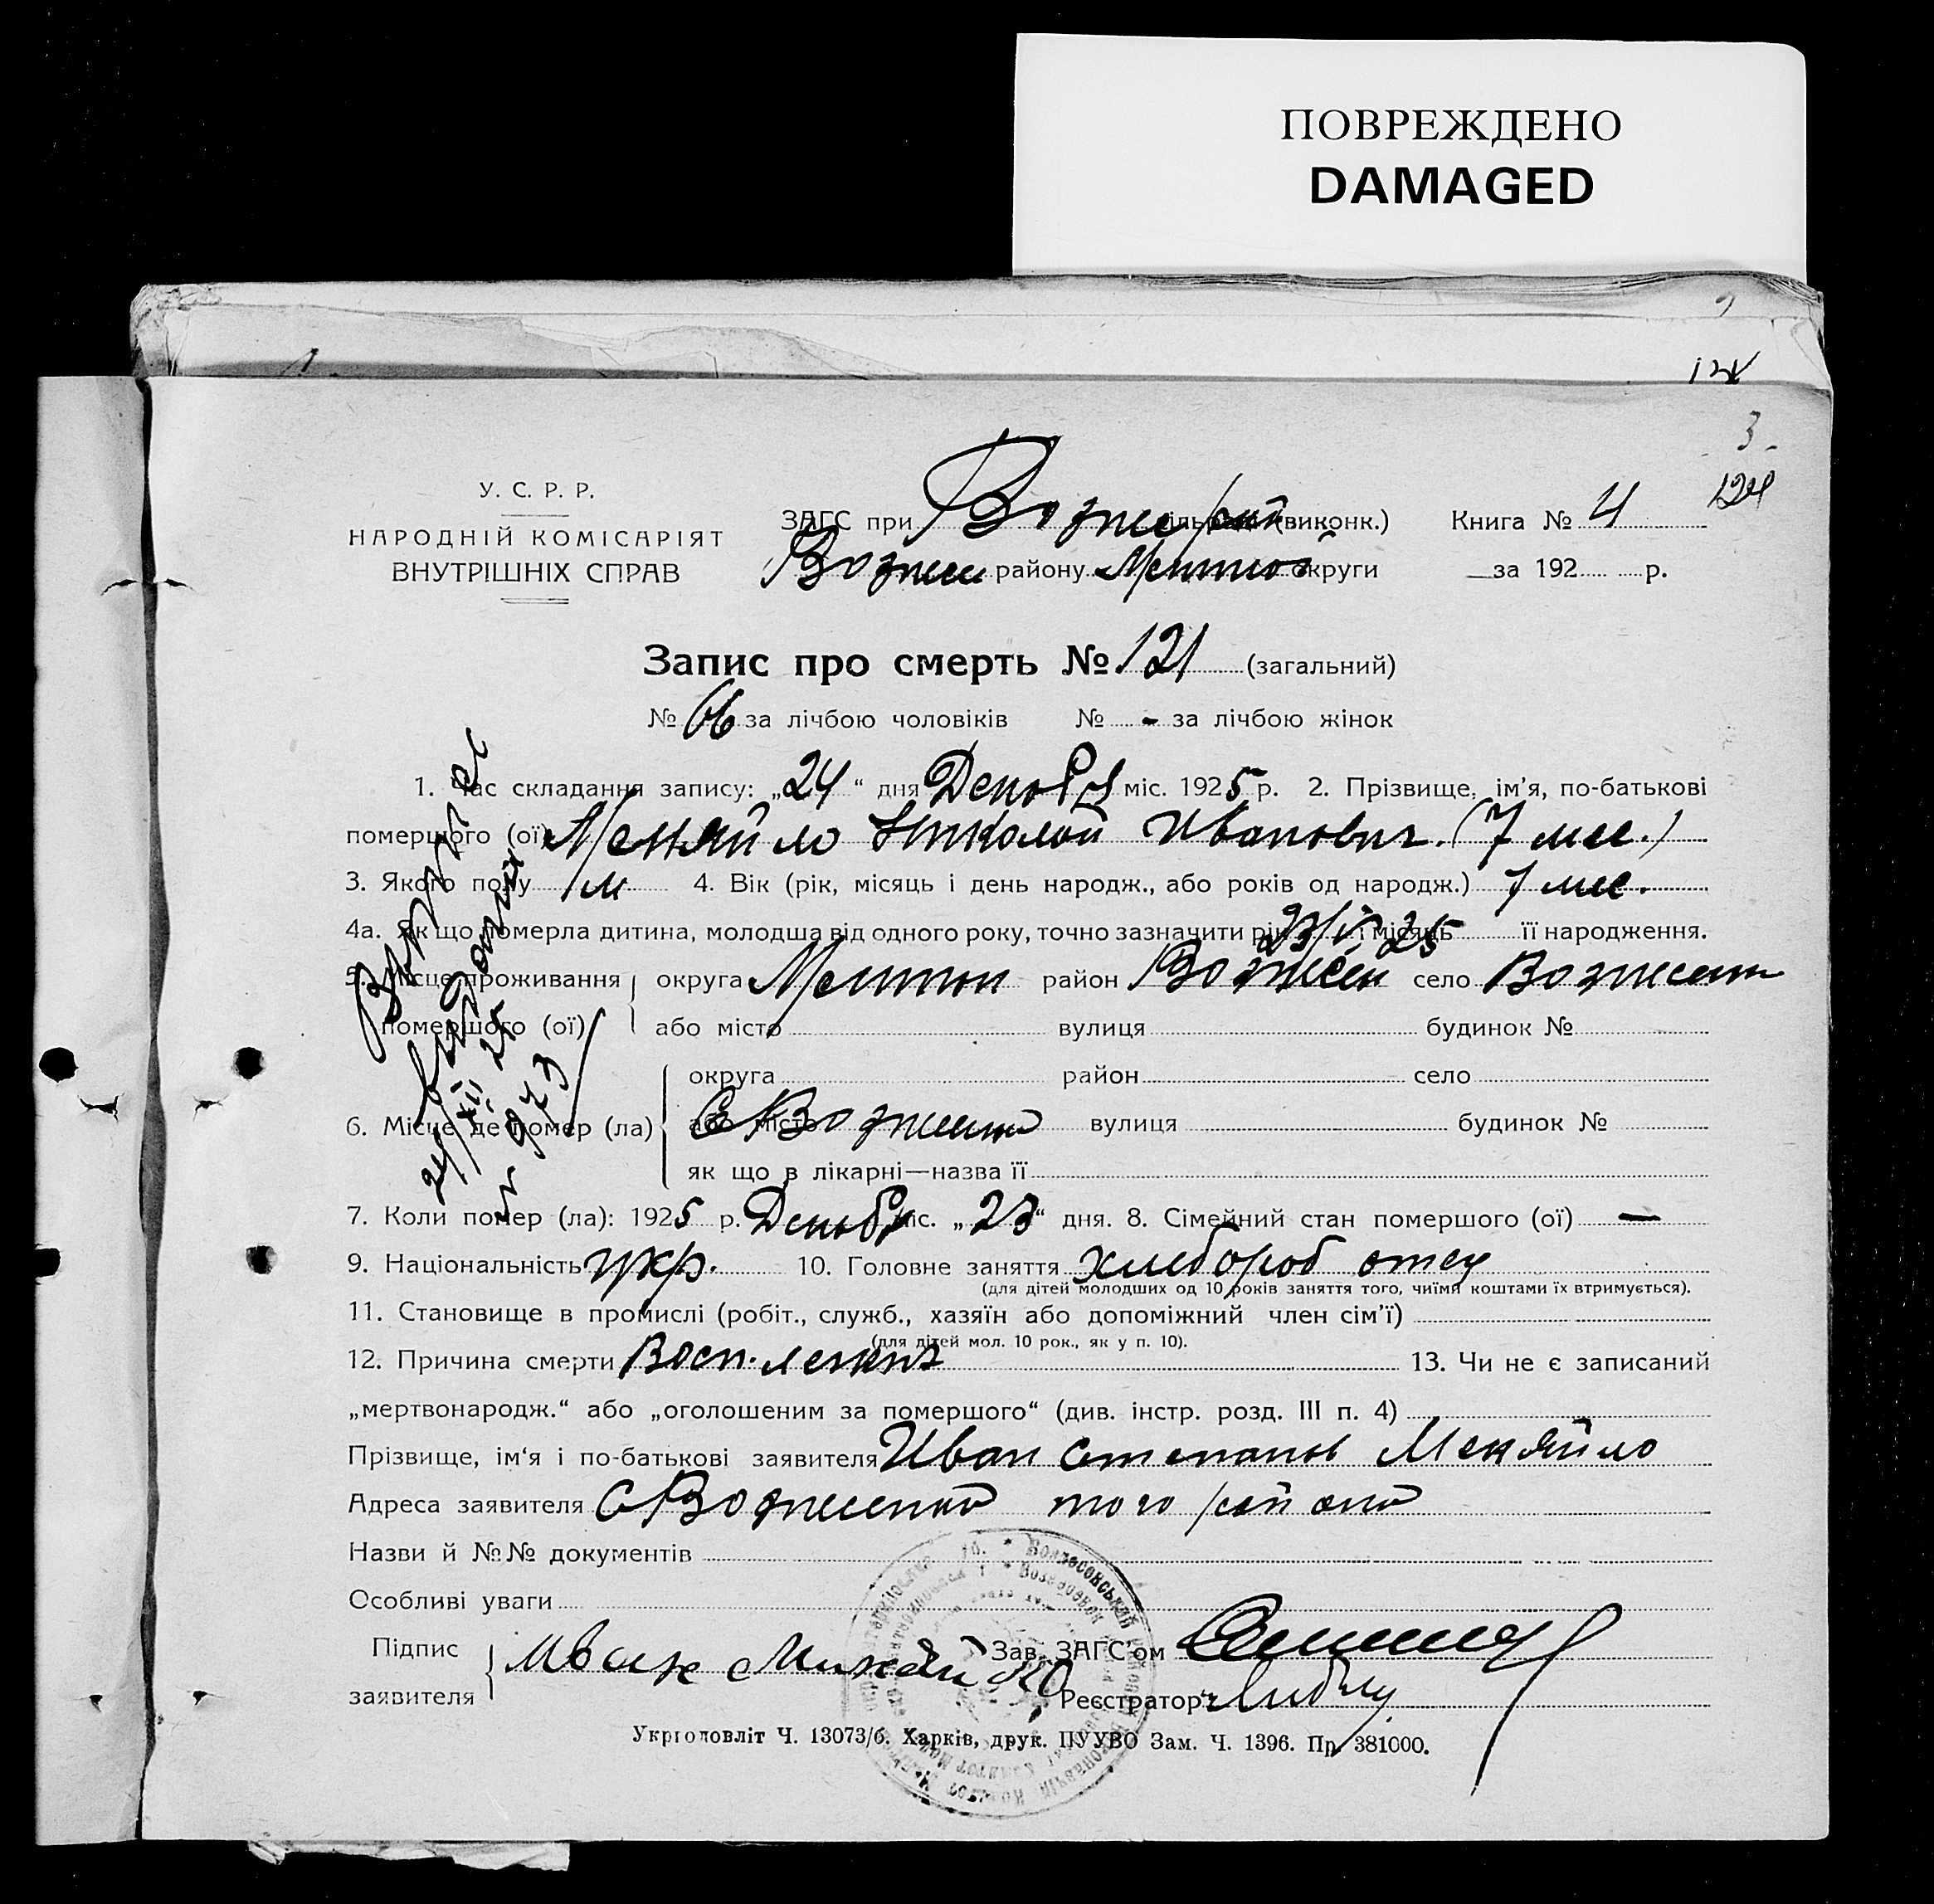 ПОВРЕЖДЕНО
DAMAGED
3
124
У. С. Р. Р.
НАРОДНІЙ КОМІСАРІЯТ
ВНУТРІШНІХ СПРАВ
ЗАГС при Вознес рай (виконк.) Книга № 4
Вознес району Мелитоп округи за 192 р.
Запис про смерть № 121 (загальний)
№ 66 за лічбою чоловіків № - за лічбою жінок
1. Час складання запису: „24“ дня Декабря міс. 1925 р. 2. Прізвище, ім'я, по-батькові
помершого (ої) Меняйло Николай Иванович. (7 мес.)
3. Якого полу м 4. Вік (рік, місяць і день народж., або років од народж.) 7 мес.
4а. Як що померла дитина, молодша від одного року, точно зазначити рік і місяць 23/V 25 її народження.
5. Місце проживання помершого (ої) округа Мелитоп район Вознесен село Вознесен
або місто вулиця будинок №
округа район село
6. Місце де помер (ла) або місто С Вознесенка вулиця будинок №
як що в лікарні—назва її
7. Коли помер (ла): 1925 р. Декабр міс. „23“ дня. 8. Сімейний стан помершого (ої) —
9. Національність укр. 10. Головне заняття хлебороб отец
(для дітей молодших од 10 років заняття того, чиїми коштами їх втримується).
11. Становище в промислі (робіт., служб., хазяїн або допоміжний член сім'ї)
(для дітей мол. 10 рок., як у п. 10).
12. Причина смерти Восп. легких 13. Чи не є записаний
„мертвонародж.“ або „оголошеним за помершого“ (див. інстр. розд. III п. 4)
Прізвище, ім'я і по-батькові заявителя Иван Степанов Меняйло
Адреса заявителя С Вознесенка того района
Назви й №№ документів
Особливі уваги
Підпис заявителя Иван Миняйло Зав. ЗАГС'ом
Реєстратор
Укрголовліт Ч. 13073/б. Харків, друк. ПУУВО Зам. Ч. 1396. Пр. 381000.
Выпис
выдании
24/XII 25
№ 973